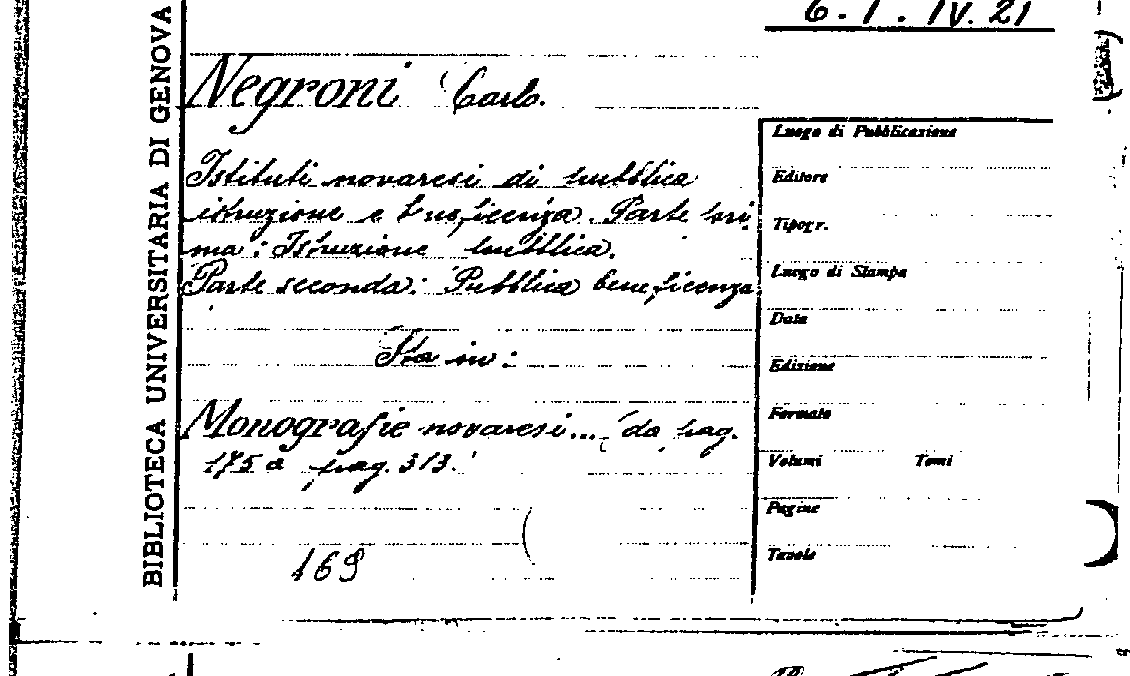 6. 1. IV. 21
BIBLIOTECA UNIVERSITARIA DI GENOVA
Negroni Carlo.
Istituti novaresi di pubblica
istruzione e beneficenza. Parte pri-
ma: Istruzione pubblica.
Parte seconda: Pubblica beneficenza
Sta in:
Monografie novaresi... da pag.
175 a pag. 313.
169
Luogo di Pubblicazione
Editore
Tipogr.
Luogo di Stampa
Data
Edizione
Formato
Volumi Tomi
Pagine
Tavole